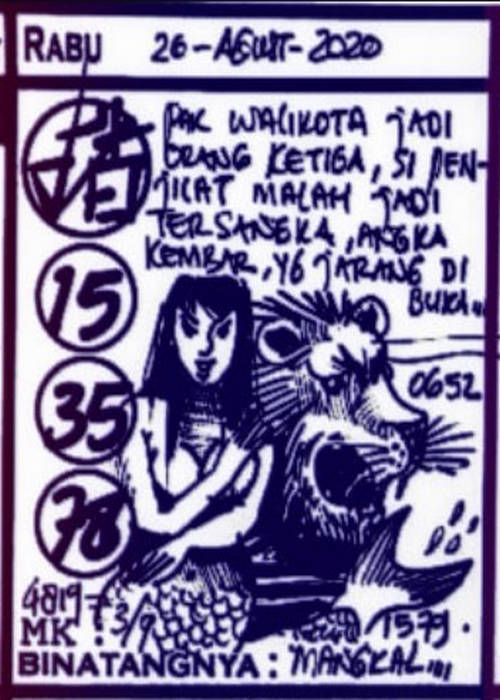 RABU 26-AGUST-2020
PAK WALIKOTA JADI
ORANG KETIGA, SI PEN-
JILAT MALAH JADI
TERSANGKA, ANGKA
KEMBAR, YG JARANG DI
BUKA...
15
35
78
0652
4819
MK : 3/9
1579.
BINATANGNYA : MANGKAL...